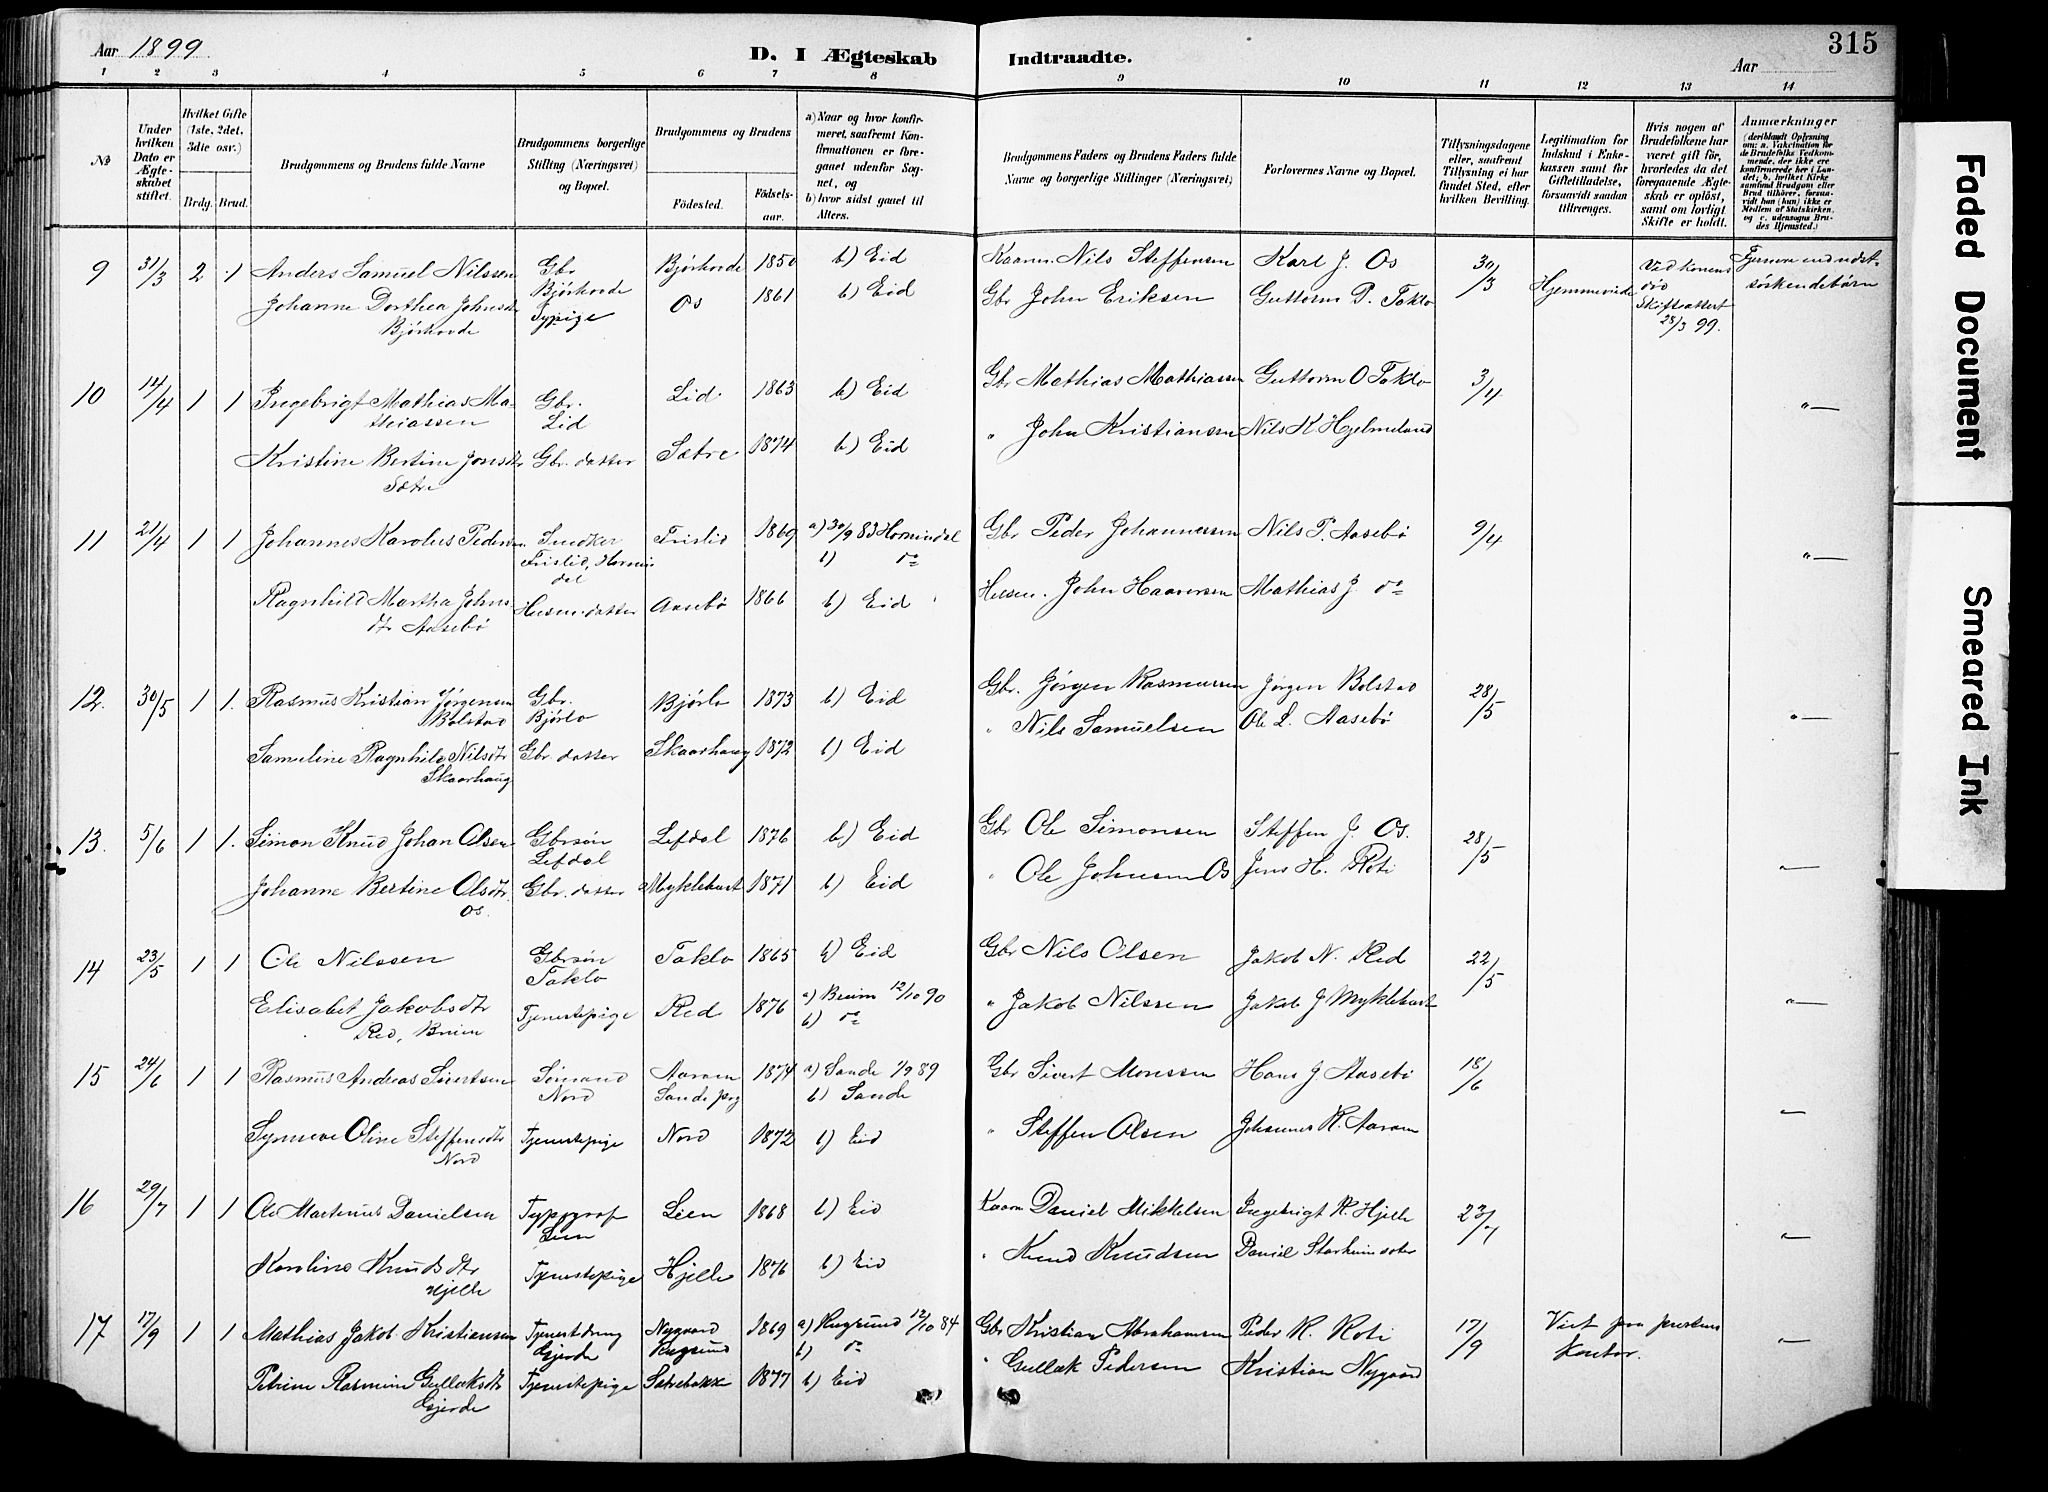 Aar 1899.
D. I Ægteskab Indtraadte.
Aar
315
1 2 3 4 5 6 7 8 9 10 11 12 13 14
No
Under hvilken Dato er Ægteskabet stiftet.
Hvilket Gifte (1ste, 2det, 3die osv.)
Brdg. Brud.
Brudgommens og Brudens fulde Navne
Brudgommens borgerlige Stilling (Næringsvei) og Bopæl.
Brudgommens og Brudens
Födested.
Födselsaar.
a) Naar og hvor konfirmeret, saafremt Konfirmationen er foregaaet udenfor Sognet, og
b) hvor sidst gaaet til Alters.
Brudgommens Faders og Brudens Faders fulde Navne og borgerlige Stillinger (Næringsvei)
Forlovernes Navne og Bopæl.
Tillysningsdagene eller, saafremt Tillysning ei har fundet Sted, efter hvilken Bevilling.
Legitimation for Indskud i Enkekassen samt for Giftetilladelse, forsaavidt saadan tiltrænges.
Hvis nogen af Brudefolkene har været gift før, hvorledes da det foregaaende Ægteskab er oplöst, samt om lovligt Skifte er holdt.
Anmærkninger
(deriblandt Oplysning om: a. Vakcination for de Brudefolks Vedkommende, der ikke ere konfirmerede her i Landet; b. hvilket Kirkesamfund Brudgom eller Brud tilhörer, forsaavidt han (hun) ikke er Medlem af Statskirken, og c. udensogns Brudes Hjemsted.)
9 31/3 2 1 Anders Samuel Nilssen Gbr Bjørhovde Bjørhovde 1850 b) Eid Kaarm. Nils Steffensen Karl J. Os 30/3 Hjemmevied Ved konens død Skifteattest 28/3 99.
Johanne Dorthea Johnsdtr Bjørhovde Sypige Os 1861 b) Eid Gbr John Eriksen Guttorm P. Taklo
10 14/4 1 1 Ingebrigt Mathias Mathiassen Gbr. Lid Lid. 1863 b) Eid Gbr Mathias Mathiassen Guttorm O Taklo 3/4 "—
Kristine Bertine Jonsdtr Sætre Gbr. datter Sætre 1874 b) Eid " John Kristiansen Nils K Hjelmeland
11 21/4 1 1 Johannes Karolus Pedersen Snedker Frislid, Hornindal Frislid 1869 a) 30/9 83 Hornindal b) do Gbr Peder Johannessen Nils P. Aasebø 9/4 "—
Ragnhild Martha Johnsdtr Aasebø Husm. datter Aasebø 1866 b) Eid Husm. John Haavorsen Mathias J. do
12. 30/5 1 1. Rasmus Kristian Jørgensen Bolstad Gbr. Bjørlo Bjørlo 1873 b) Eid Gbr. Jørgen Rasmussen Jørgen Bolstad 28/5 "—
Samuline Ragnhild Nilsdtr Skaarhaug Gbr. datter Skaarhaug 1872 b) Eid " Nils Samuelsen Ole L. Aasebø
13. 5/6 1 1. Simon Knud Johan Olsen Gbrsøn Lefdal Lefdal 1876 b) Eid Gbr Ole Simonsen Steffen J. Os. 28/5 "—
Johanne Bertine Olsdtr. Os. Gbr. datter Myklebust 1871 b) Eid " Ole Johnsen Os Jens H. Roti
14 23/5 1 1 Ole Nilssen Gbrsøn Taklo Taklo 1865 b) Eid Gbr Nils Olsen Jakob N. Red 22/5 "—
Elisabet Jakobsdtr Red, Breim Tjenestepige Red 1876 a) Breim 12/10 90 b) do " Jakob Nilssen Jakob J Myklebust
15 24/6 1 1 Rasmus Andreas Sivertsen Sømand Nord Aaram Sande prg 1874 a) Sande 1/9 89 b) Sande Gbr Sivert Monssen Hans J. Aasebø 18/6 "—
Synneve Oline Steffensdtr Nord Tjenestepige Nord 1872 b) Eid " Steffen Olsen Johannes R. Aaram
16 29/7 1 1 Ole Martinus Danielsen Typograf Lien Lien 1868 b) Eid Kaarm Daniel Mikkelsen Ingebrigt R. Hjelle 23/7 "—
Karoline Knudsdtr Hjelle Tjenestepige Hjelle 1876 b) Eid " Knud Knudsen Daniel Starheimsæter
17 17/9 1 1 Mathias Jakob Kristiansen Tjenestdreng Gjerde Nygaard Rugsund 1869 a) Rugsund 12/10 84 b) do Gbr Kristian Abrahamsen Peder R. Roti 17/9 Viet paa prestens kontor. "—
Petrine Rasmine Gullaksdtr Gjerde Tjenestepige Sætrebakke 1877 b) Eid " Gullak Pedersen Kristian Nygaard
Faded Document
Smeared Ink